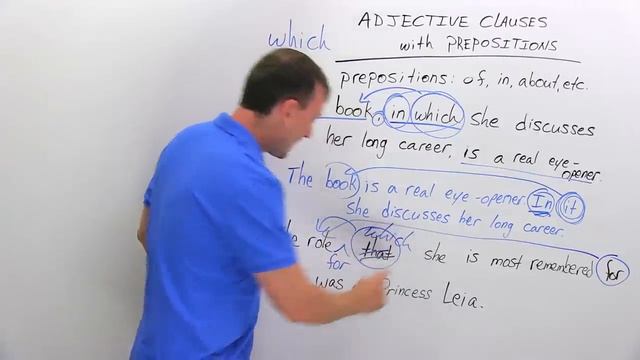 ADJECTIVE CLAUSES
which with PREPOSITIONS
prepositions: of, in, about, etc.
book, in which she discusses
her long career, is a real eye-
opener.
The book is a real eye-opener. In it
she discusses her long career.
role for which that she is most remembered for
was Princess Leia.